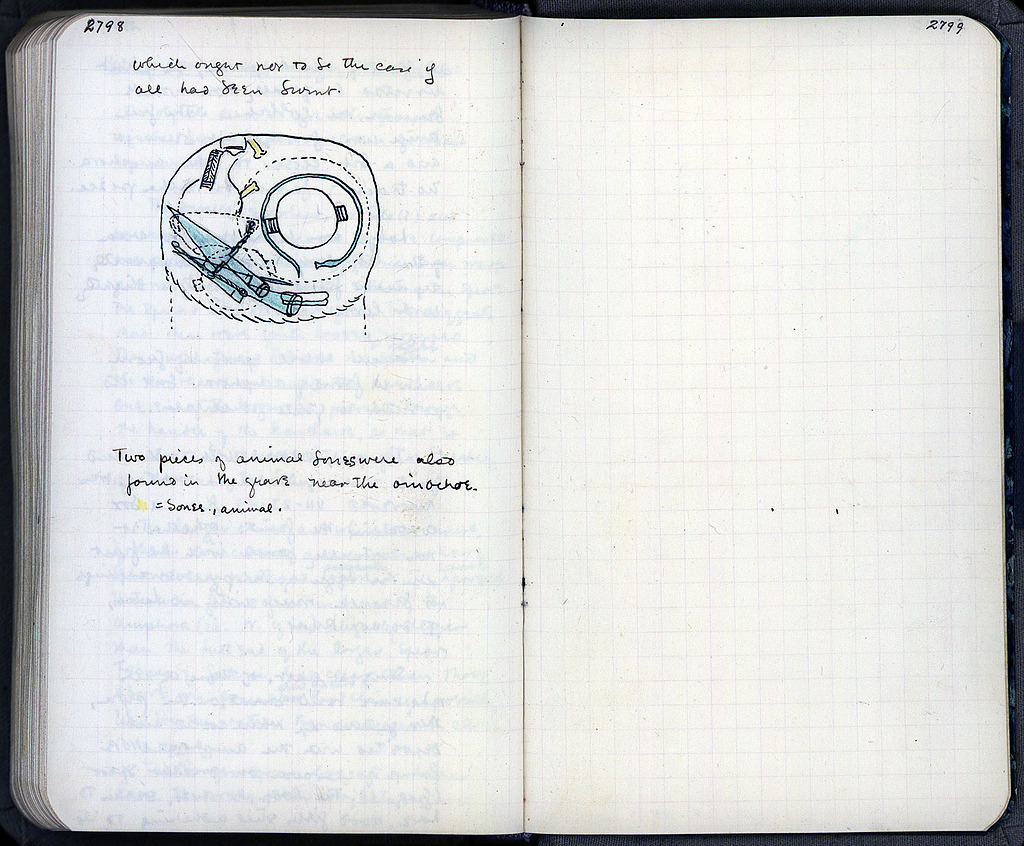 2798
which ought not to be the case if
all had been burnt.
Two pieces of animal bones were also
found in the grave near the oinochoe.
= bones, animal.
2799